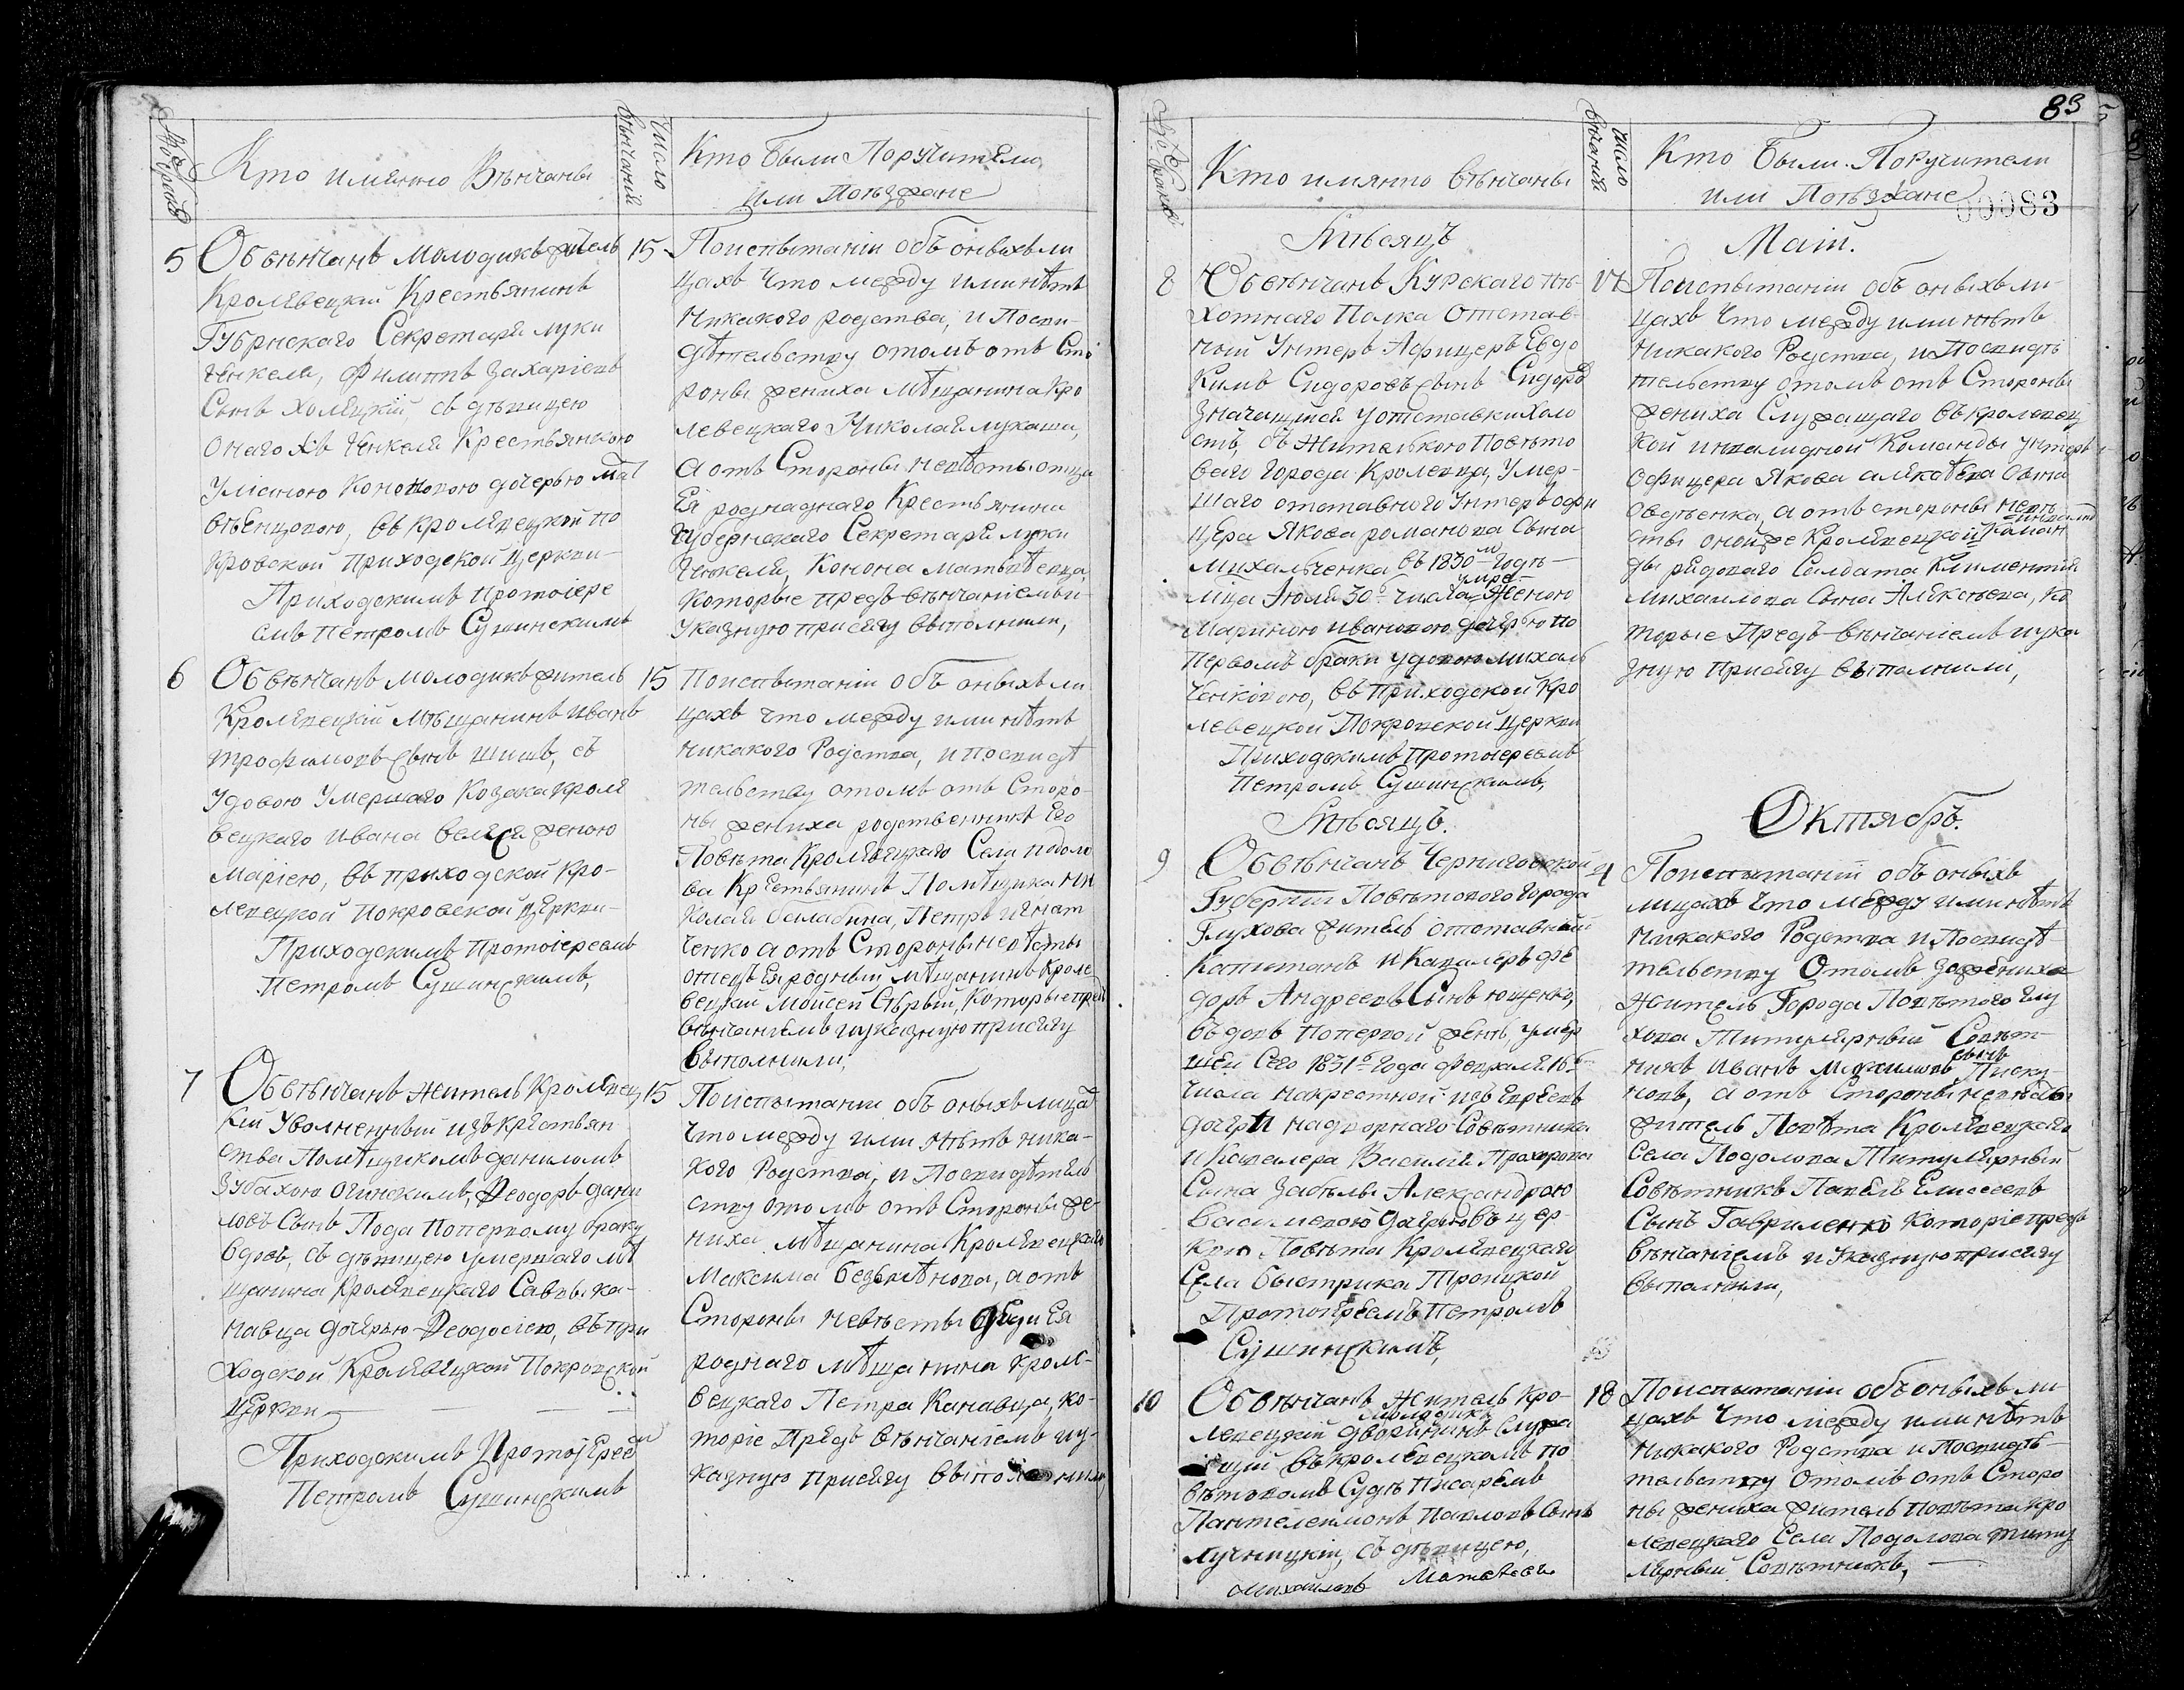 № браковъ
Кто имянно Вѣнчаны
Число вѣнчаній
Кто были Поручители
или Поѣзжане
5
Обвѣнчанъ молодикъ житель
Кролевецкій Крестьянинъ
Губернскаго Секретаря луки
Ченкели, Филиппъ Захаріевъ
Сынъ Холяцкій, съ дѣвицею
онаго жъ Ченкеля Крестьянкою
Уліаною Кононовою дочерью мат
вѣенцовою, въ Кролевецкой по
кровской приходской церкви
Приходскимъ протоіере
емъ петромъ Сушинскимъ
15
Поиспытаніи объ оныхъ ли
цахъ Что между ими нѣтъ
никакого родства, и Посви-
дѣтельству отомъ отъ Сто
роны жениха мѣщанина Кро
левецкаго Николая лукаши,
а отъ Стороны невѣсты отца
Ея роднаго Крестьянина
Губернскаго Секретаря луки
Ченкеля, Конона матвѣевца,
которые предъ вѣнчаніемъ и
указную присягу выполнили,
6
Обвѣнчанъ молодикъ житель
Кролевецкій мѣщанинъ Иванъ
трофимовъ Сынъ шишъ, съ
Удовою Умершаго Козака кроле
вецкаго Ивана женою
маріею, въ приходской Кро-
левецкой покровской церкви-
Приходскимъ протоіереемъ
петромъ Сушинскимъ,
15
Поиспытаніи объ оныхъ ли
цахъ Что между ими нѣтъ
никакого Родства, и посвидѣ
тельству отомъ отъ Сторо-
ны жениха родственникъ Его
Повѣта Кролевецкаго Села подоло
ва Крестьянинъ Помѣщика ни
колая балабина, Петръ игнат
ченко а отъ Стороны невѣсты
отецъ Ея родный мѣщанинъ Кроле
вецкій моисей Сѣрый, Которые предъ
вѣнчаніемъ и указную присягу
выполнили,
7
Обвѣнчанъ житель Кролевец
кій Уволненный изъ крестьян
ства Помѣщикомъ даниломъ
Зубахою Огинскимъ, Феодоръ дани
ловъ Сынъ Лода попервому браку
вдовъ, съ дѣвицею умершаго мѣ
щанина Кролевецкаго Саввы ка-
навца дочерью Феодосіею, въ при
ходской Кролевецкой Покровской
Церкви
Приходскимъ Протоіерее
Петромъ Сушинскимъ
15
Поиспытаніи объ оныхъ лицах
Что между ими нѣтъ ника-
кого Родства, и Посвидѣтель
ству отомъ отъ Стороны же-
ниха мѣщанина Кролевецкаго
Максима а отъ
Стороны невѣсты Ея
роднаго мѣщанина кроле-
вецкаго Петра Канавца, ко-
торіе Предъ вѣнчаніемъ иу-
казную присягу выполнили,
83
00083
№ браковъ
Кто имянно вѣнчаны
Число вѣнчаній
Кто Были Поручители
или Поѣзжане
Мѣсяцъ
Маій.
8
Обвѣнчанъ Курскаго пѣ-
хотнаго Полка Отстав-
ной Унтеръ Афицеръ Евдо
кимъ Сидоровъ Сынъ Сидоро
значащійся уотставки холо
стъ, съ жителькою Повѣто
ваго города Кролевца, Умер-
шаго отставного Унтеръ офи
цера Якова романова Сына
михальченка въ 1830м годѣ-
мца Іюля 30го числа умре. женою
Мариною Ивановою дочерью по
первомъ браки удовою михаль
ченковою, въ приходской Кро
левецкой Покровской церкви
Приходскимъ Протоіереемъ
Петромъ Сушинскимъ,
17
Поиспытаніи объ оныхъ ли-
цахъ Что между ими нѣтъ
никакого Родства, и Посвидѣ
тельству отомъ отъ Стороны
жениха Служащаго въ кролевец
кой инвалидной Команды унтеръ
офицера Якова Сына
а отъ стороны невѣ
сты онойже Кролевецкой инвалид Коман
ды рядоваго Салдата Климентія
михаилова Сына Алексѣева, ко
торые Предъ вѣнчаніемъ иука
зную присягу выполнили,
Мѣсяцъ.
Октябрь.
9
Обвѣнчанъ Черниговской
Губерніи Повѣтового города
Глухова житель отставный
Капитанъ и Кавалеръ фе
доръ Андреевъ Сынъ ющенко,
вдовъ попервой женѣ, умер
шей Сего 1831го года февраля 16го
числа накрестной изъ Евреевъ
дочери надворнаго Совѣтника
и Кавалера Василія Прохорова
Сына Забѣлы Александрою
Василіевою дочерью въ цер-
кви Повѣта Кролевецкаго
Села быстрика Троицкой
Протоіереемъ Петромъ
Сушинскимъ,
4
Поиспытаніи объ оныхъ
лицахъ Что между ими нѣтъ
никакого Родства и Посвидѣ
тельству Отомъ за жениха
житель Города Повѣтого Глу
хова Титулярный Совѣт-
никъ Иванъ сынъ Писку
новъ, а отъ Стороны невѣсты
житель Повѣта Кролевецкаго
Села Подолова Титулярный
Совѣтникъ Павелъ Елисеевъ
Сынъ Гавриленко которіе предъ
вѣнчаніемъ и Указную присягу
выполнили,
10
Обвѣнчанъ житель Кро-
левецкій молодикъ дворянинъ Служа
щій въ кролевецкомъ по
вѣтовомъ Судѣ писаремъ
Пантелеимонъ Павловъ Сынъ
Лучницкій, съ дѣвицею,
18
Поиспытаніи объ оныхъ ли-
цахъ Что между ими нѣтъ
никакого Родства и Посвидѣ-
тельству Отомъ отъ Сторо
ны жениха житель повѣта Кро
левецкаго Села Подолова титу
лярный Совѣтникъ,